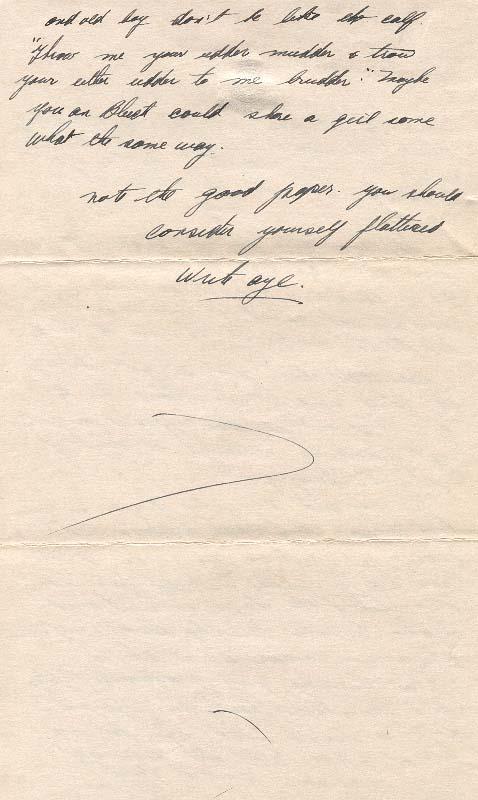 and old boy don't be like the calf.
"Throw me your udder mudder & trow
your etter udder to me brudder." Maybe
you an Bleet could share a girl some
what the same way.
note the good paper. you should
consider yourself flattered
Write aye.